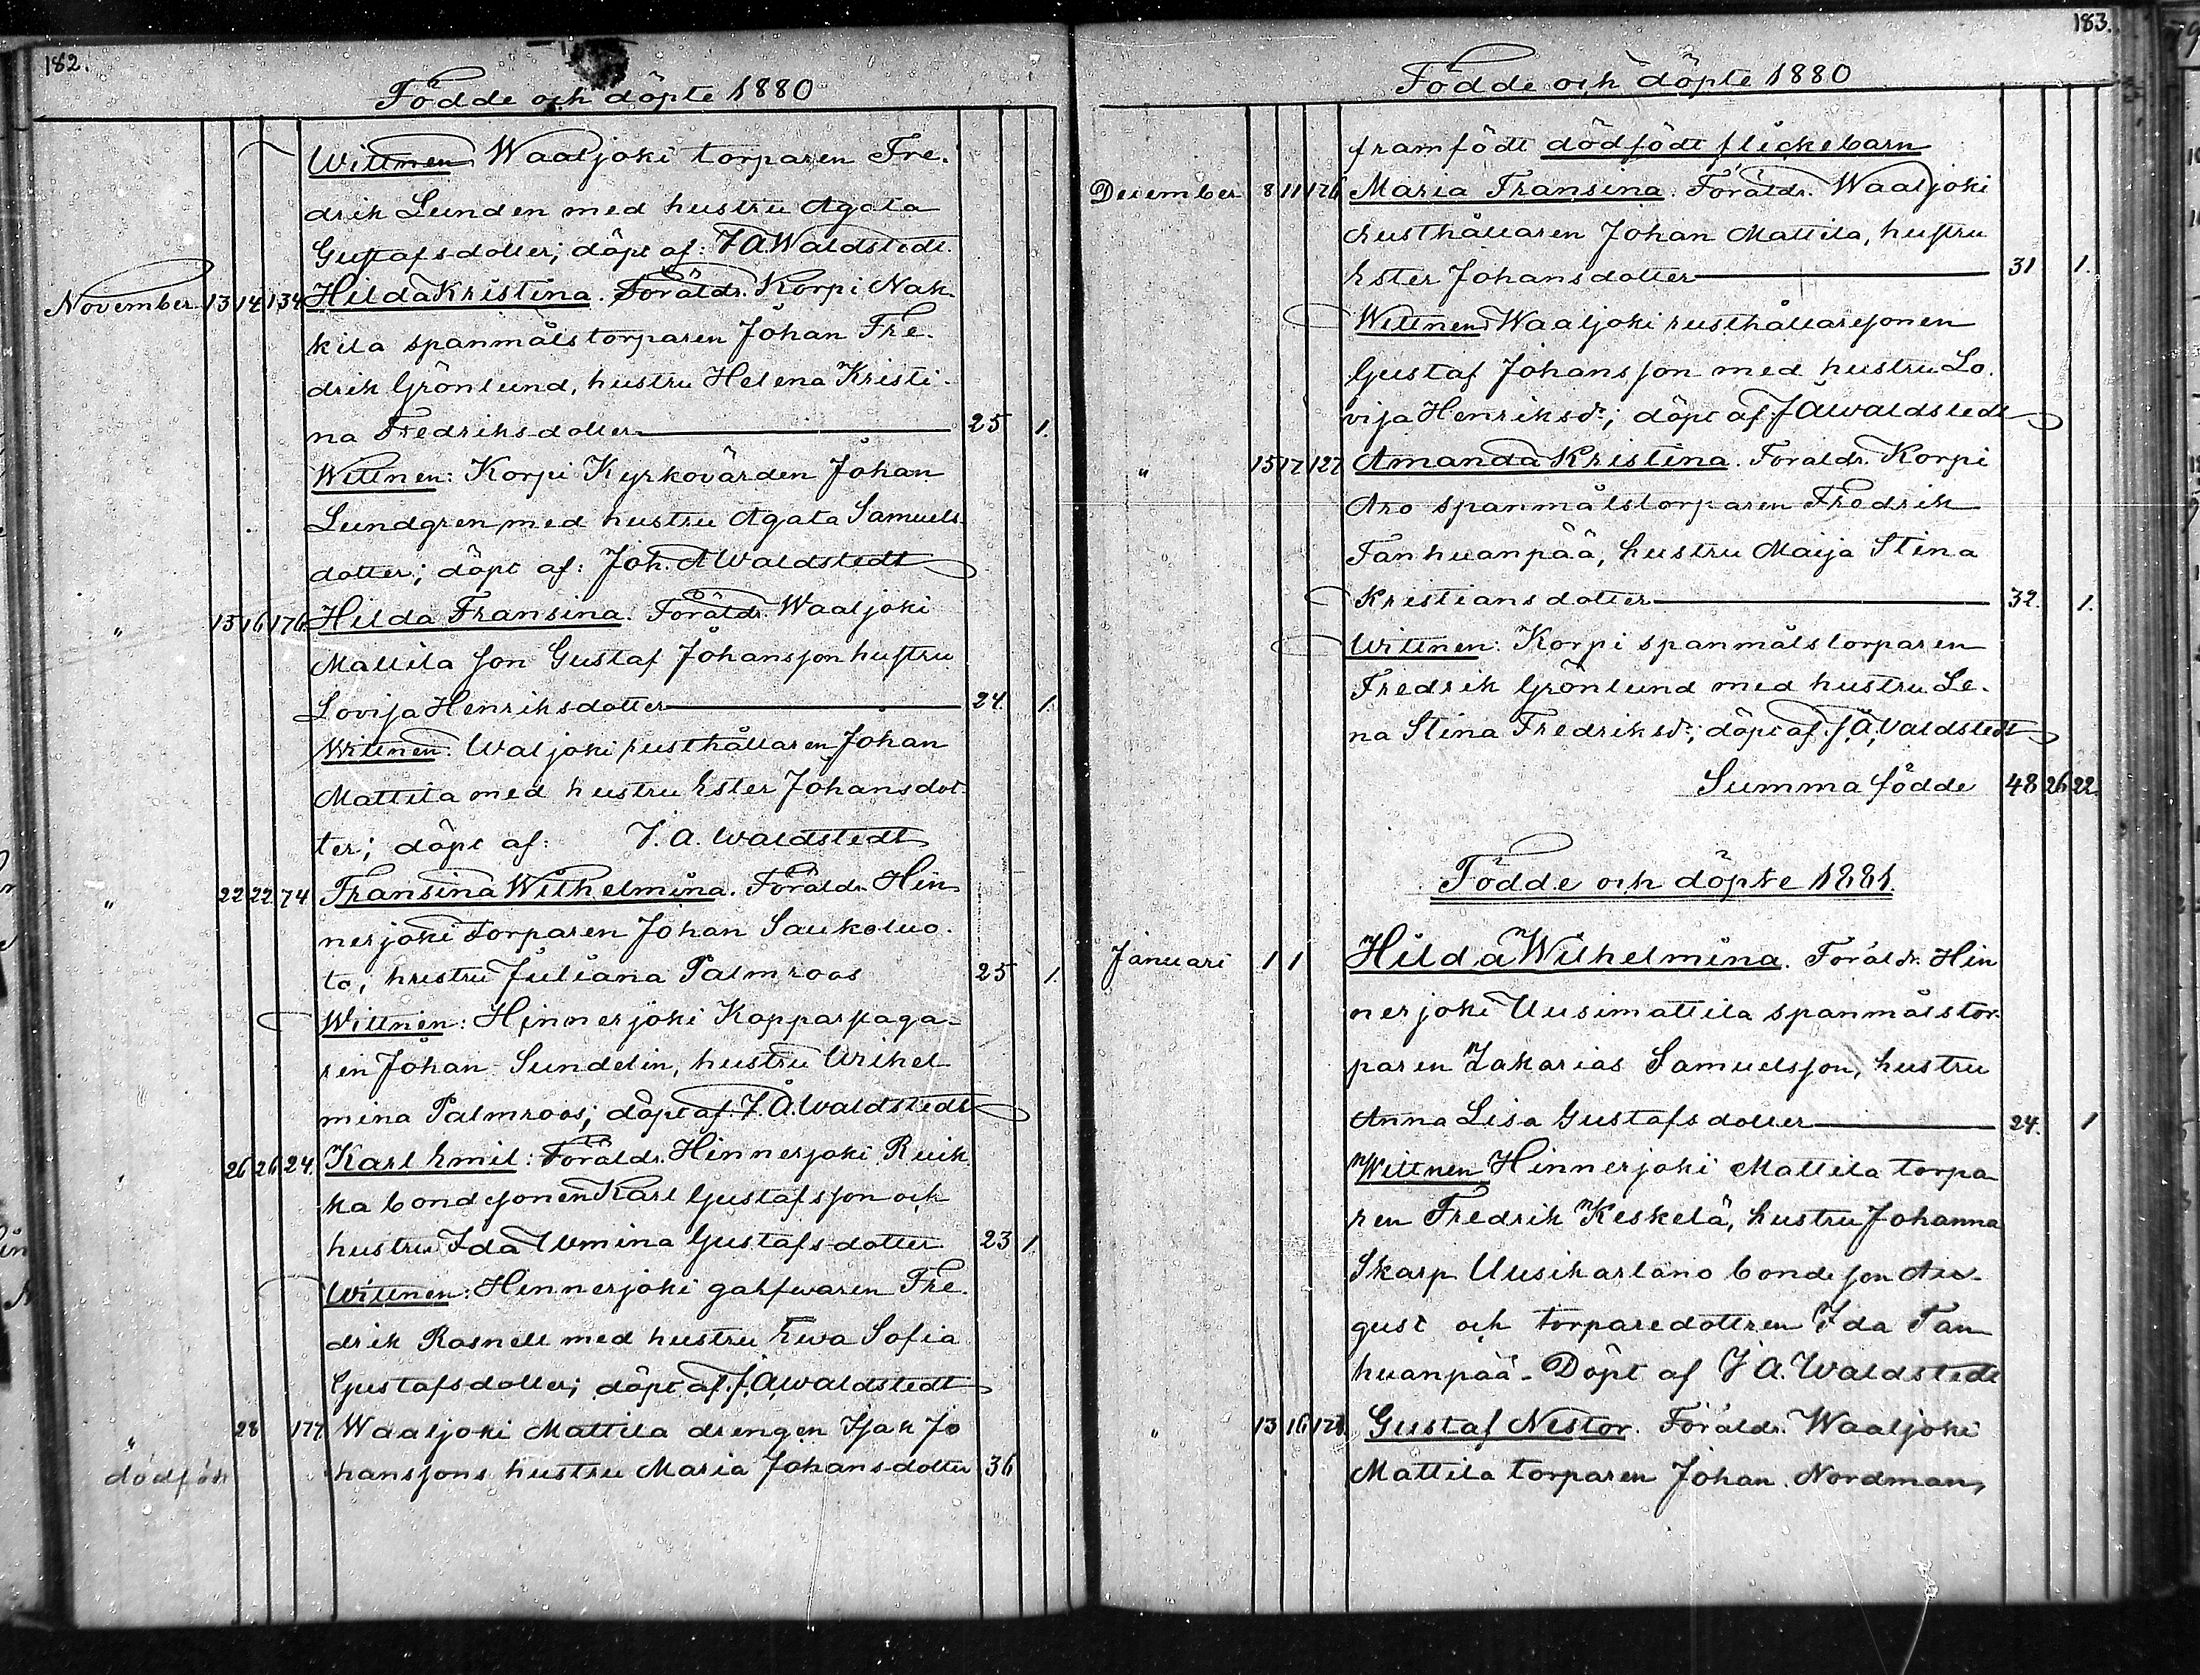 182.
Födde och döpte 1880
Wittnen Waaljoki torparen Fre-
drik Lunden med hustru Agata
Gustafsdotter; döpt af: J A Waldstedt.
November 13 14 134 Hilda Kristina. Föräldr. Korpi Nak-
kila spanmålstorparen Johan Fre-
drik Grönlund, hustru Helena Kristi-
na Fredriksdotter 25 1.
Wittnen: Korpi Kyrkovärden Johan
Lundgren med hustru Agata Samuels-
dotter; döpt af: Joh. A Waldstedt
" 15 16 176 Hilda Fransina. Föräldr. Waaljoki
Mattila son Gustaf Johansson hustru
Lovisa Henriksdotter 24. 1.
Wittnen: Waljoki rusthållaren Johan
Mattila med hustru Ester Johansdot-
ter; döpt af: J. A. Waldstedt
" 22 22 74 Fransina Wilhelmina. Föräldr. Hin-
nerjoki torparen Johan Saukoluo-
to, hustru Juliana Palmroos 25 1.
Wittnen: Hinnerjoki Kopparslaga-
ren Johan Sundelin, hustru Wihel
mina Palmroos; döpt af. J. A. Waldstedt
" 26 26 24. Karl Emil: Föräldr. Hinnerjoki Ruik-
ka bondesonen Karl Gustafsson och
hustru Ida Wmina Gustafsdotter 23 1.
Wittnen: Hinnerjoki garfwaren Fre-
drik Rosnell med hustru Ewa Sofia
Gustafsdotter; döpt af. J. A Waldstedt
" 28 177 Waaljoki Mattila drengen Isak Jo
dödför hanssons hustru Maria Johansdotter 36
183.
Födde och döpte 1880
framfödt dödfödt flickebarn
December 8 11 126 Maria Fransina. Föräldr. Waaljoki
rusthållaren Johan Mattila, hustru
Ester Johansdotter 31 1.
Wittnen Waaljoki rusthållaresonen
Gustaf Johansson med hustru Lo-
visa Henriksdr; döpt af. J A Waldstedt
" 15 17 127 Amanda Kristina. Föräldr. Korpi
Aro spanmålstorparen Fredrik
Tanhuanpää, hustru Maija Stina
Kristiansdotter 32. 1.
Wittnen: Korpi spanmålstorparen
Fredrik Grönlund med hustru Le-
na Stina Fredriksdr; döpt af. J. A. Waldstedt
Summa födde 48 26 22.
Födde och döpte 1881.
Januari 1 1 Hilda Wilhelmina. Föräldr. Hin
nerjoki Uusimattila spanmålstor-
paren Zakarias Samuelsson, hustru
Anna Lisa Gustafsdotter 24. 1
Wittnen Hinnerjoki Mattila torpa-
ren Fredrik Keskelä, hustru Johanna
Skarp Uusikartano bondeson Au-
gust och torparedottren Ida Tan-
huanpää - Döpt af J A. Waldstedt
" 13 16 128. Gustaf Nestor. Föräldr. Waaljoki
Mattila torparen Johan Nordman,